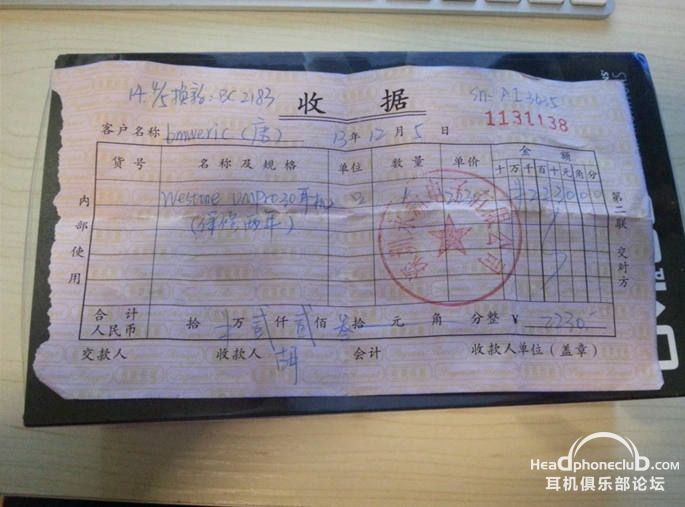 14. 4/5 换新: BC2183
收 据
Sn. A13635
1131138
客户名称 bmweric (唐) 13年12月5日
货号 名称及规格 单位 数量 单价 金额
十万千百十元角分
Westone UMPro30耳机 1 2230 2230 0 0
(保修两年)
内部使用
第二联 交对方
合计
人民币 拾 万贰仟贰佰叁拾 元 角 分整 ¥ 2230.-
交款人 收款人 胡 会计 收款人单位(盖章)
Headphoneclub.com
耳机俱乐部论坛